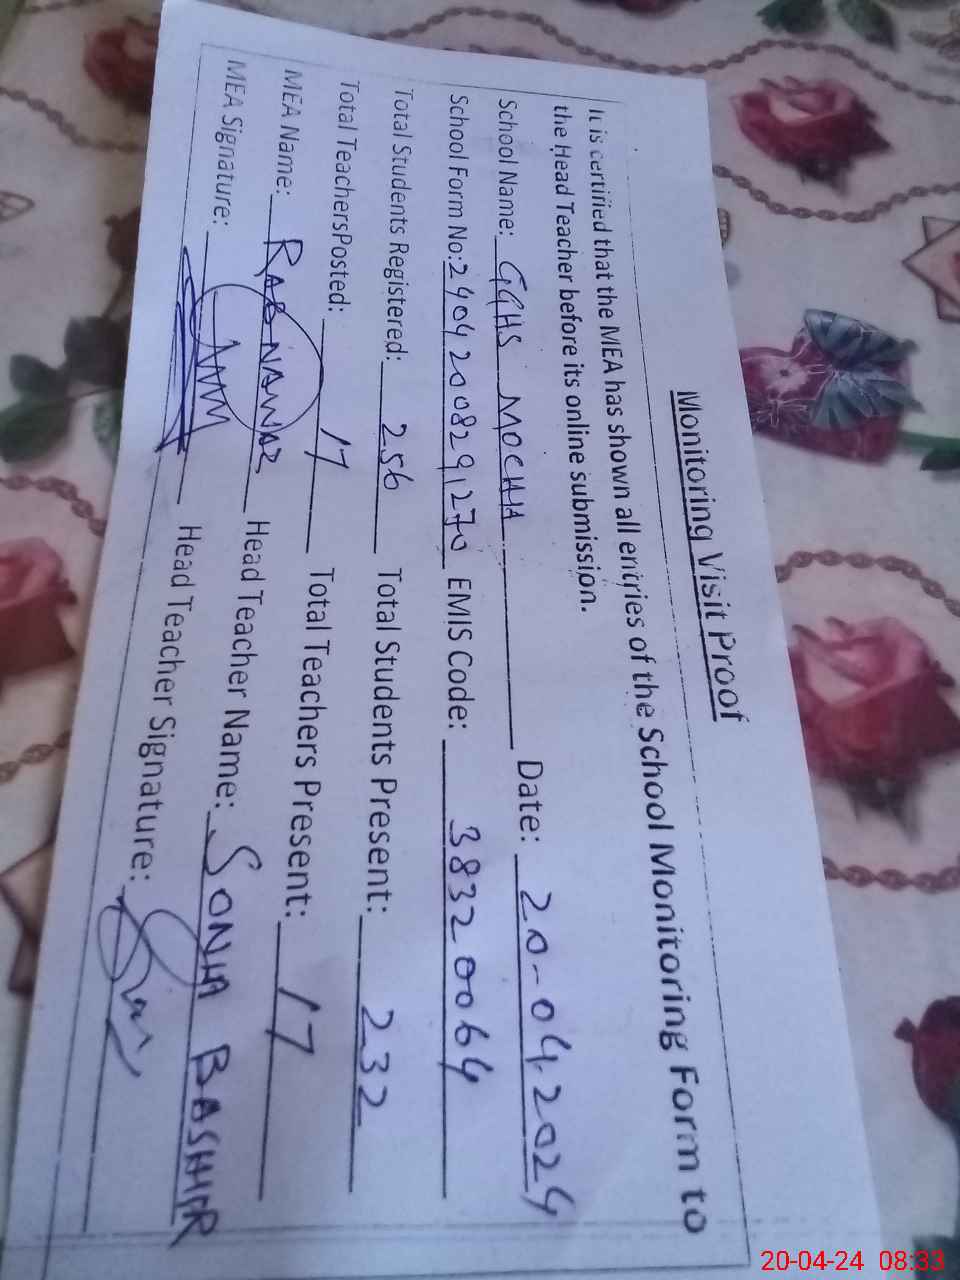 Monitoring Visit Proof
It is certified that the MEA has shown all entries of the School Monitoring Form to
the Head Teacher before its online submission.
School Name: GGHS MOCHH Date: 20-04-2024
School Form No: 24042008291270 EMIS Code: 38320064
Total Students Registered: 256 Total Students Present: 232
Total TeachersPosted: 17 Total Teachers Present: 17
MEA Name: RAB NAWAZ Head Teacher Name: SONIA BASHIR
MEA Signature: Head Teacher Signature:
20-04-24 08:33